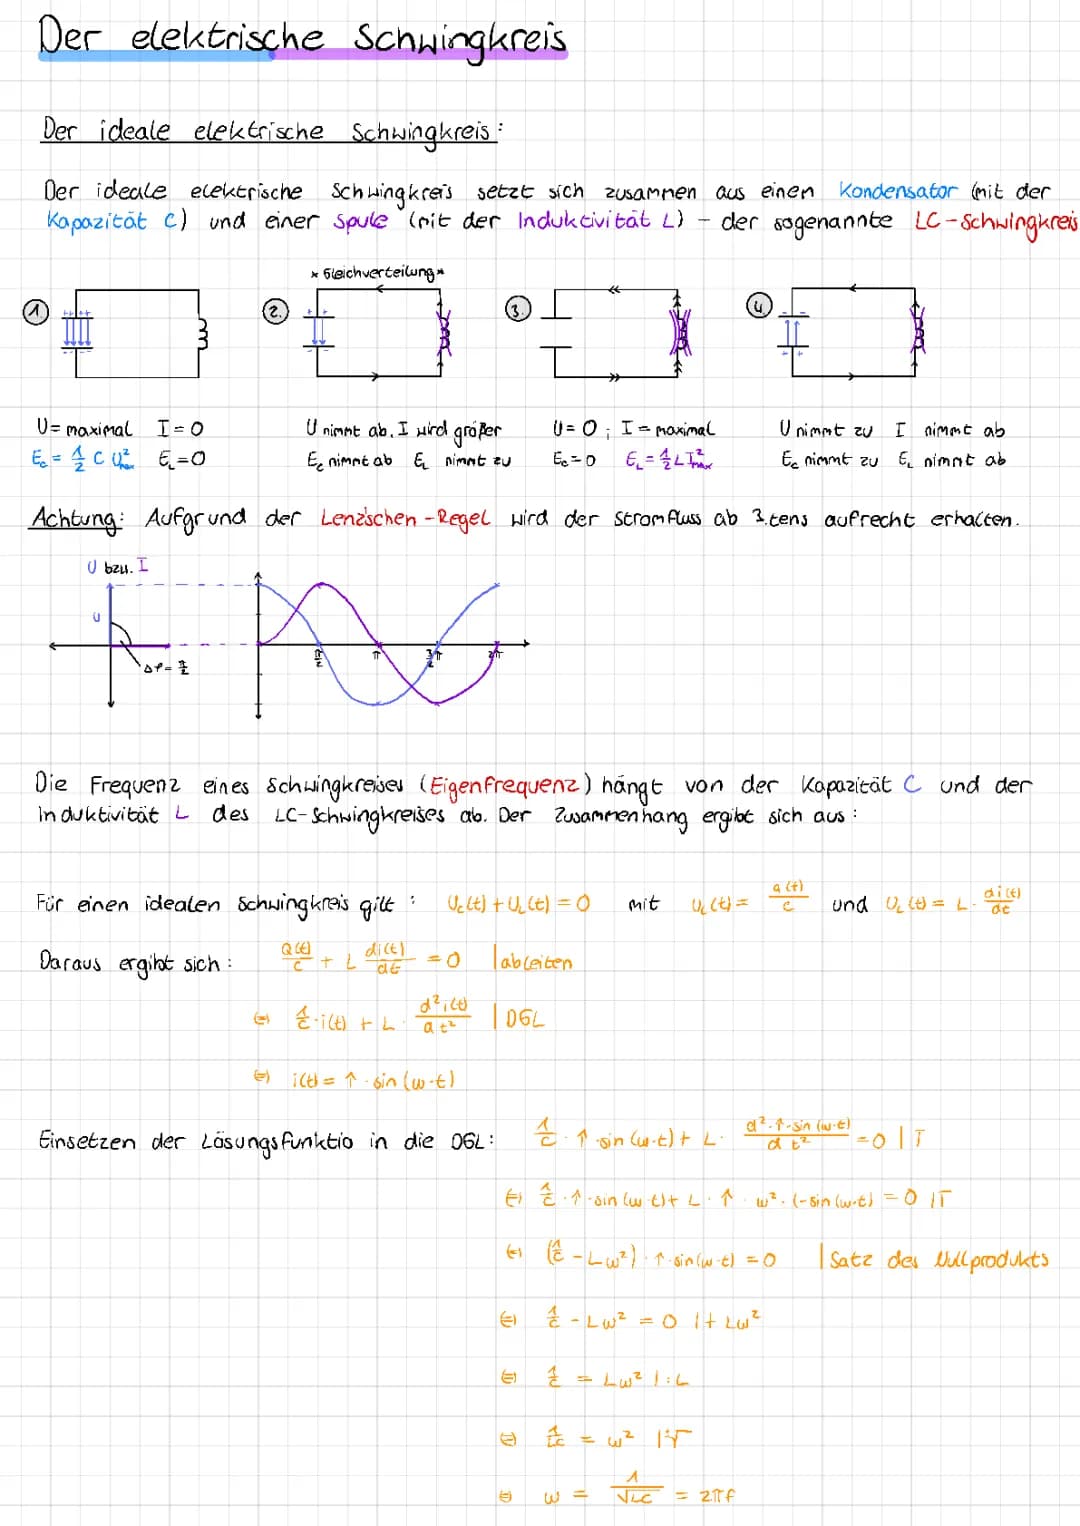 Der elektrische Schwingkreis
Der ideale elektrische Schwingkreis:
Der ideale elektrische Schwingkreis setzt sich zusammen aus einen Kondensator (mit der
Kapazität C) und einer Spule (mit der Induktivität L) – der sogenannte LC-Schwingkreis
* Gleichverteilung *
1 2. 3. 4.
U = maximal I = 0
E_c = 1/2 C U²max E_L = 0
U nimmt ab, I wird größer
E_c nimmt ab E_L nimmt zu
U = 0; I = maximal
E_c = 0 E_L = 1/2 L I²max
U nimmt zu I nimmt ab
E_c nimmt zu E_L nimmt ab
Achtung: Aufgrund der Lenz'schen-Regel wird der Stromfluss ab 3.tens aufrecht erhalten.
U bzw. I
U
Δφ = π/2
π/2 π 3/2 π 2π
Die Frequenz eines Schwingkreises (Eigenfrequenz) hängt von der Kapazität C und der
Induktivität L des LC-Schwingkreises ab. Der Zusammenhang ergibt sich aus:
Für einen idealen Schwingkreis gilt: U_c(t) + U_L(t) = 0 mit U_c(t) = q(t)/c und U_L(t) = L · di(t)/dt
Daraus ergibt sich: Q(t)/c + L di(t)/dt = 0 | ableiten
⇔ 1/c · i(t) + L · d²i(t)/dt² | DGL
⇔ i(t) = ↑ · sin(ω·t)
Einsetzen der Lösungsfunktio in die DGL: 1/c · ↑ · sin(ω·t) + L · d²·↑·sin(ω·t)/dt² = 0 | T
⇔ 1/c · ↑ · sin(ω·t) + L · ↑ · ω² · (-sin(ω·t) = 0 | T
⇔ (1/c - Lω²) · ↑ · sin(ω·t) = 0 | Satz des Nullprodukts
⇔ 1/c - Lω² = 0 | + Lω²
⇔ 1/c = Lω² | : L
⇔ 1/LC = ω² | √
⇔ ω = 1/√LC = 2πf